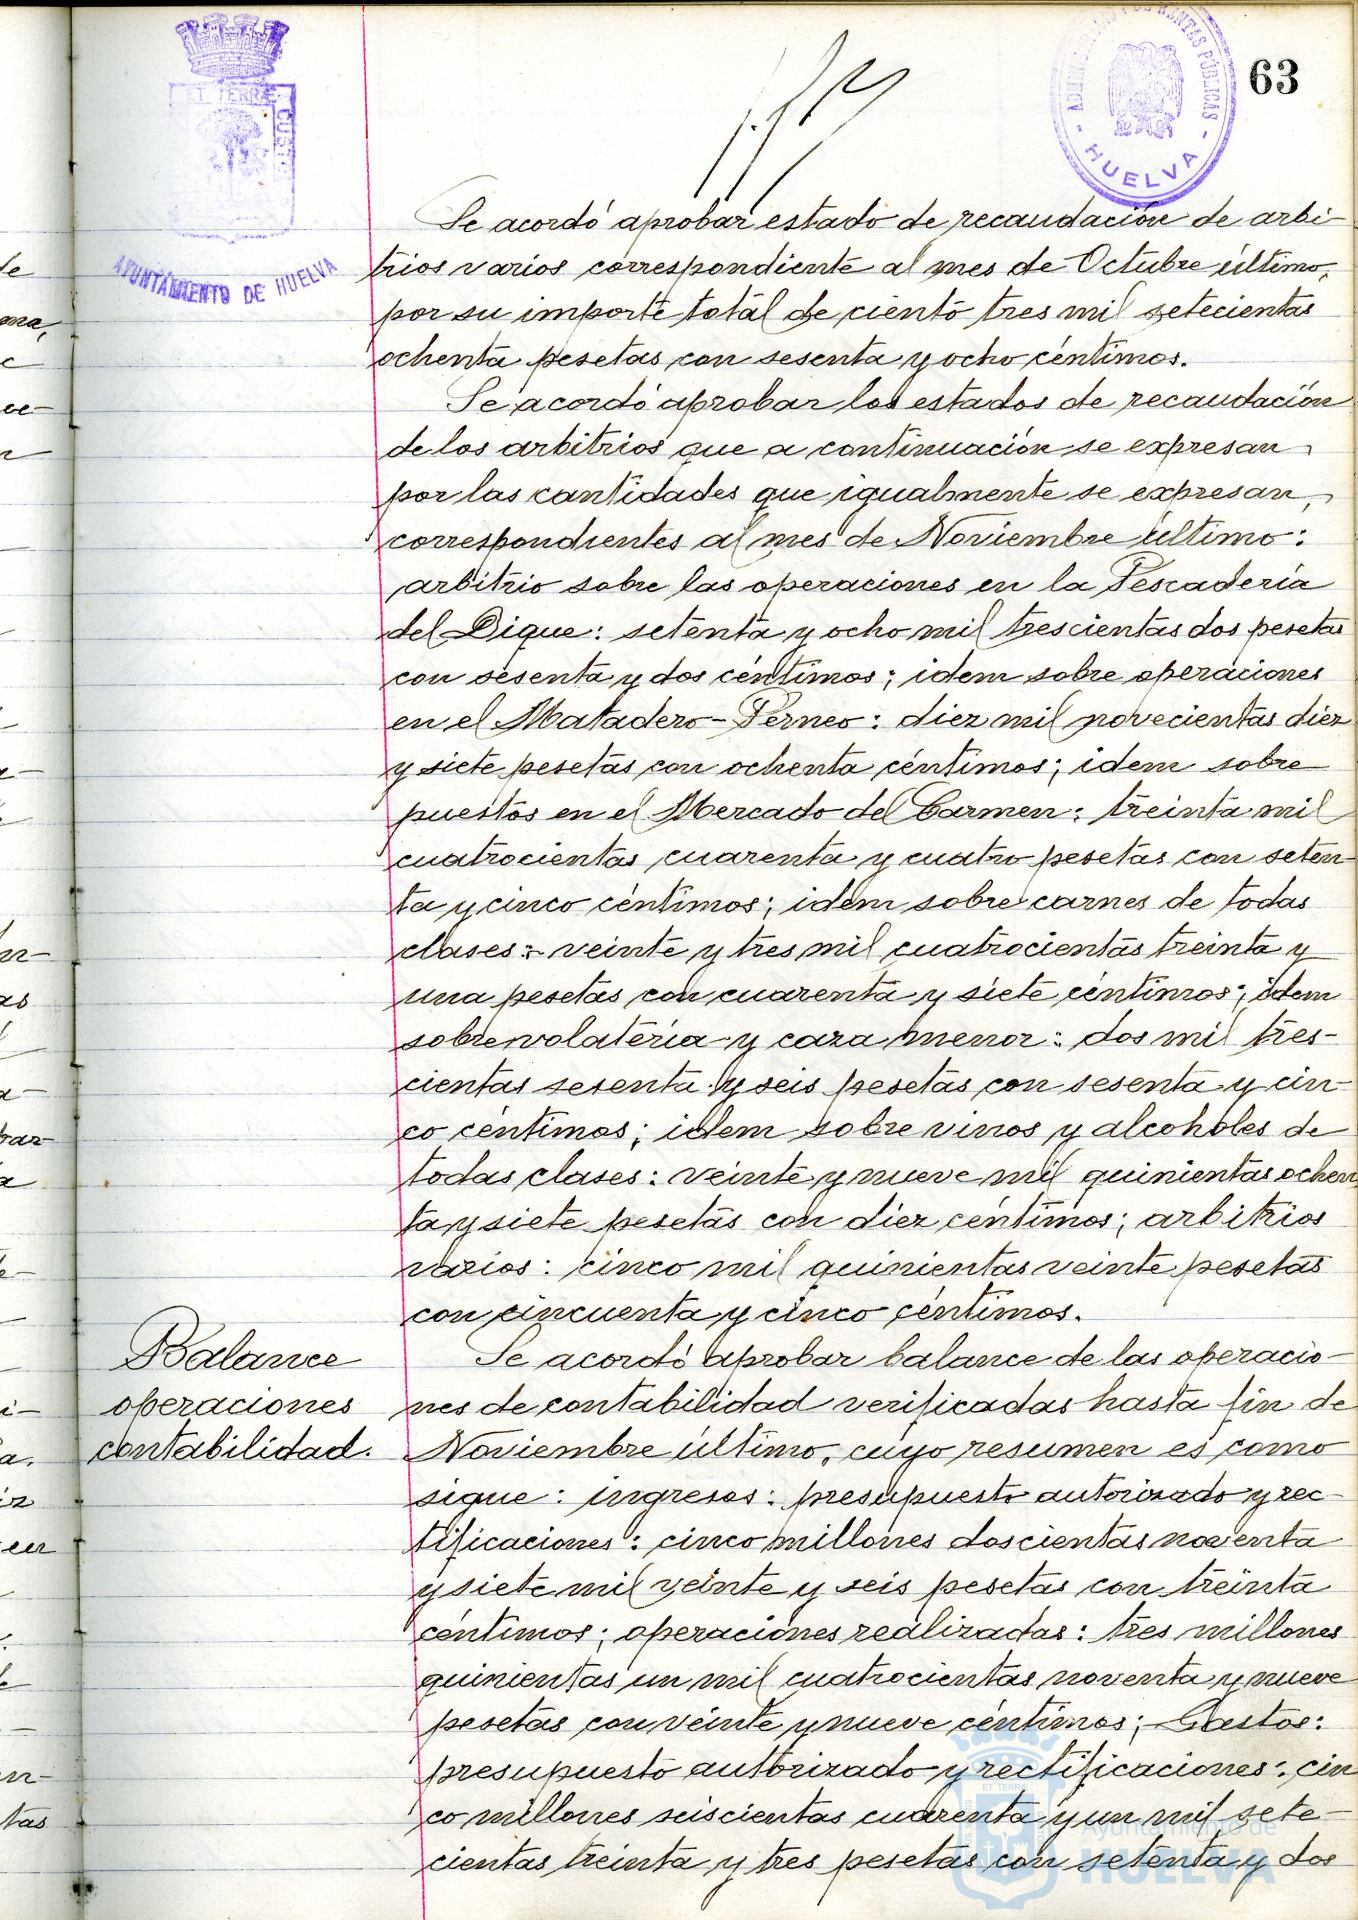 63
ET TERRÆ CUSTO
AYUNTAMIENTO DE HUELVA
ADMINISTRACIÓN DE RENTAS PÚBLICAS
- HUELVA -
Se acordó aprobar estado de recaudación de arbi-
trios varios correspondiente al mes de Octubre último,
por su importe total de ciento tres mil setecientas
ochenta pesetas con sesenta y ocho céntimos.
Se acordó aprobar los estados de recaudación
de los arbitrios que a continuación se expresan,
por las cantidades que igualmente se expresan,
correspondientes al mes de Noviembre último:
arbitrio sobre las operaciones en la Pescadería
del Dique: setenta y ocho mil trescientas dos pesetas
con sesenta y dos céntimos; idem sobre operaciones
en el Matadero-Perneo: diez mil novecientas diez
y siete pesetas con ochenta céntimos; idem sobre
puestos en el Mercado del Carmen: treinta mil
cuatrocientas cuarenta y cuatro pesetas con seten-
ta y cinco céntimos; idem sobre carnes de todas
clases:- veinte y tres mil cuatrocientas treinta y
una pesetas con cuarenta y siete céntimos; idem
sobre volatería y caza menor: dos mil tres-
cientas sesenta y seis pesetas con sesenta y cin-
co céntimos; idem sobre vinos y alcoholes de
todas clases: veinte y nueve mil quinientas ochen
ta y siete pesetas con diez céntimos; arbitrios
varios: cinco mil quinientas veinte pesetas
con cincuenta y cinco céntimos.
Balance
operaciones
contabilidad.
Se acordó aprobar balance de las operacio-
nes de contabilidad verificadas hasta fin de
Noviembre último, cuyo resumen es como
sigue: ingresos: presupuesto autorizado y rec-
tificaciones: cinco millones doscientas noventa
y siete mil veinte y seis pesetas con treinta
céntimos; operaciones realizadas: tres millones
quinientas un mil cuatrocientas noventa y nueve
pesetas con veinte y nueve céntimos; Gastos:
presupuesto autorizado y rectificaciones: cin
co millones seiscientas cuarenta y un mil sete-
cientas treinta y tres pesetas con setenta y dos
ET TERRÆ
Ayuntamiento de
HUELVA